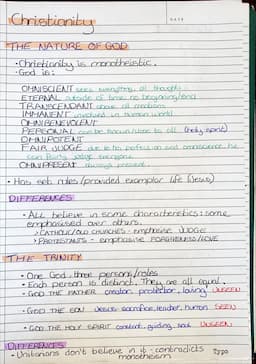 Christianity
DATE
THE NATURE OF GOD
• Christianity is monotheistic.
• God is:
OMNISCIENT sees everything, all thoughts
ETERNAL outside of time, no beginning/end
TRANSCENDANT above all creation
IMMANENT involved in human world
OMNIBENEVOLENT
PERSONAL can be found/close to all (holy spirit)
OMNIPOTENT
FAIR JUDGE due to his perfection and omniscience he
can fairly judge everyone
OMNIPRESENT always present
• Has set rules/provided example for life (Jesus)
DIFFERENCES
• ALL believe in some characteristics; some
emphasised over others.
> CATHOLIC/OLD CHURCHES - emphasise JUDGE
> PROTESTANTS - emphasise FORGIVENESS/LOVE
THE TRINITY
• One God, three persons/roles
• Each person is distinct. They are all equal.
• GOD THE FATHER creator, protector, loving UNSEEN
• GOD THE SON Jesus, sacrifice, teacher, human SEEN
• GOD THE HOLY SPIRIT comfort, guiding, soul UNSEEN
DIFFERENCES
• Unitarians don't believe in it: contradicts
monotheism
Typo